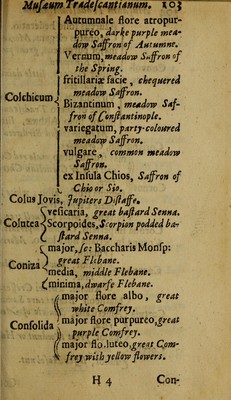 Musæum Tradescantianum. 103
Autumnale flore atropur-
pureo, darke purple mea-
dow Saffron of Autumne.
Vernum, meadow Saffron of
the Spring.
fritillariæ facie, chequered
meadow Saffron.
Colchicum
Bizantinum, meadow Saf-
fron of Constantinople.
variegatum, party-coloured
meadow Saffron.
vulgare, common meadow
Saffron.
ex Insula Chios, Saffron of
Chio or Sio.
Colus Jovis, Jupiters Distaffe.
vesicaria, great bastard Senna.
Colutea Scorpoides, Scorpion podded ba-
stard Senna.
major, se: Baccharis Monsp:
great Flebane.
Coniza
media, middle Flebane.
minima, dwarfe Flebane.
major flore albo, great
white Comfrey.
Consolida
major flore purpureo, great
purple Comfrey.
major flo. luteo, great Com-
frey with yellow flowers.
H 4 Con-